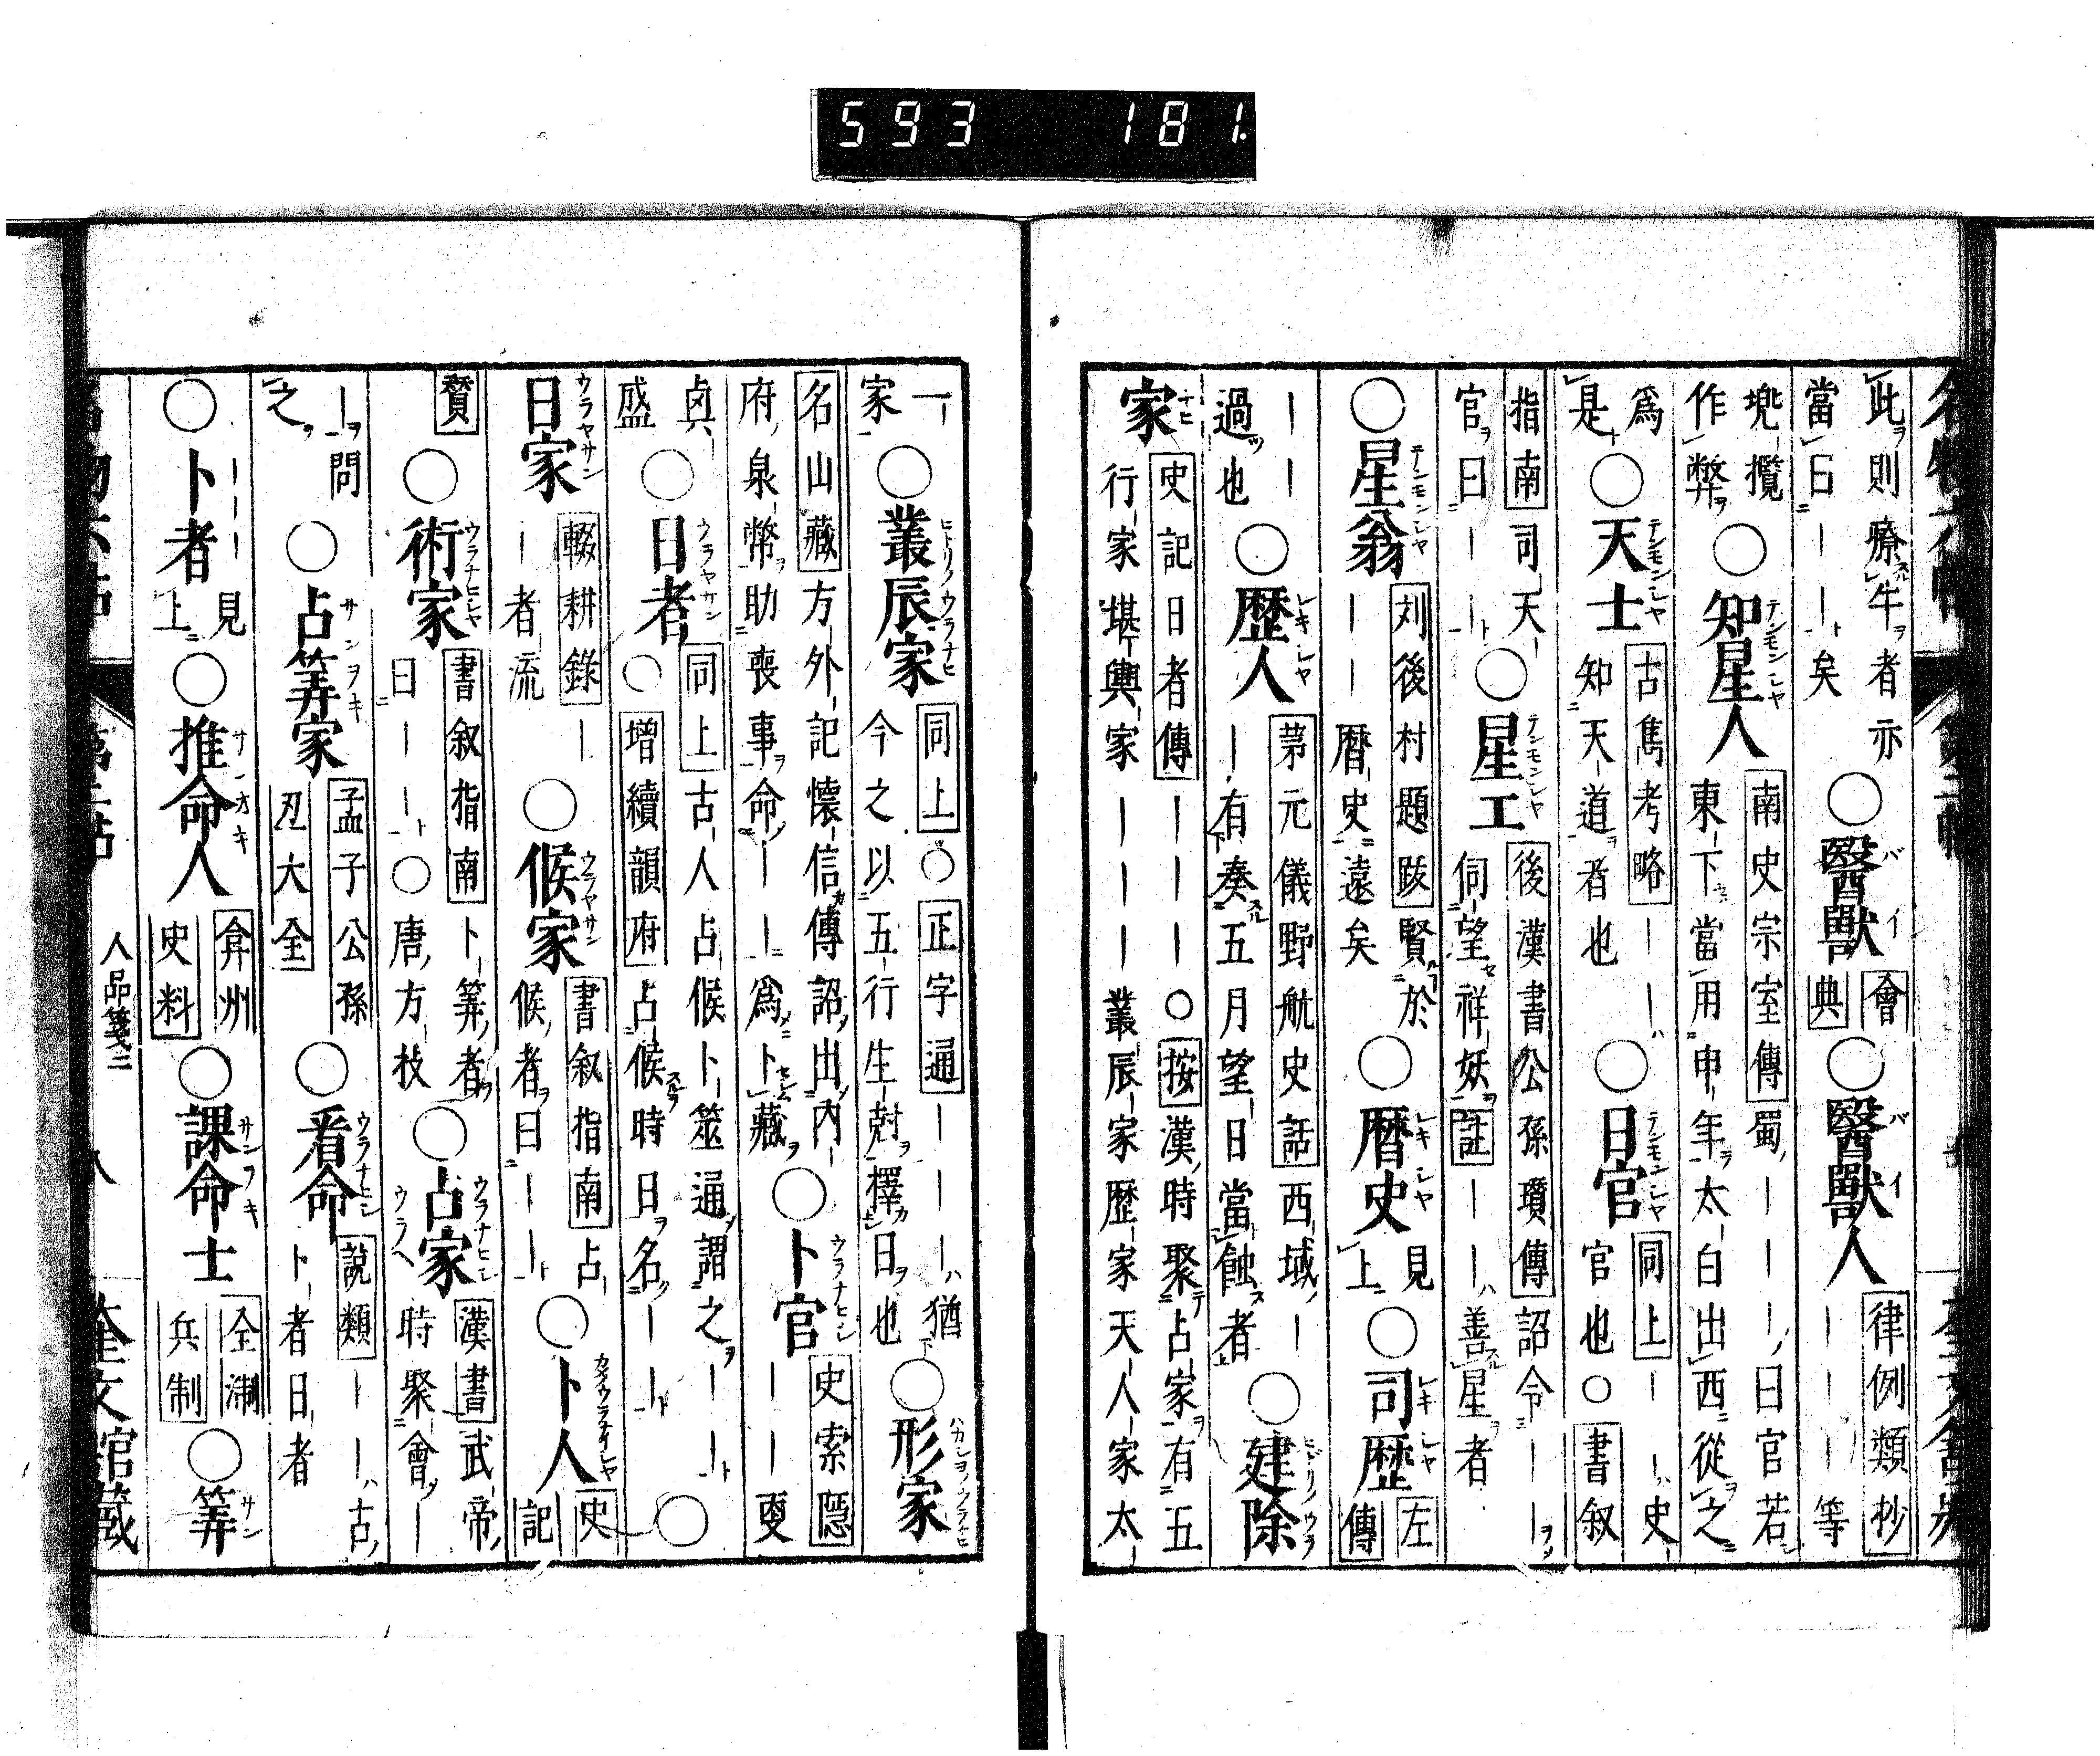 593 181.
此則療牛者亦當曰――矣○醫獸 會典 ○醫獸人 律例類抄 ――――等
攬作弊○知星人 南史宗室傳 蜀―――曰官若東下當用申年太白出西從之
爲是○天士 古雋考略 ――知天道者也○日官 同上 ――史官也○書叙
指南 司天官曰――○星工 後漢書公孫瓚傳 詔令――伺望祥妖 註 ――善星者
○星翁 刘後村題跋 賢於――――暦史遠矣○暦史 見上 ○司歴 左傳
――――過也○歴人 苐元儀野航史話 西域――有奏五月望日當蝕者○建除
家 史記日者傳 ――――○按漢時聚占家有五行家堪輿家――――叢辰家歷家天人家太
一家○叢辰家 同上 ○正字通 ―――猶今之以五行生尅擇日也○形家
名山藏 方外記懐信傳詔出内府泉幣助喪事命――爲卜藏○卜官 史索隠 ――――
○日者 同上 古人占候卜筮通謂之――○盛○増續韻府 占候時日名――
日家 輟耕錄 ――者流○候家 書叙指南 占候者曰――○卜人 史記
○術家 書叙指南 卜筭者曰――○唐方技○占家 漢書 武帝時聚會―
―問之○占筭家 孟子公孫丑大全 ○看命 說類 ――古卜者日者
―――○卜者 見上 ○推命人 弇州史料 ○課命士 全淛兵制 ○筭
人品箋三